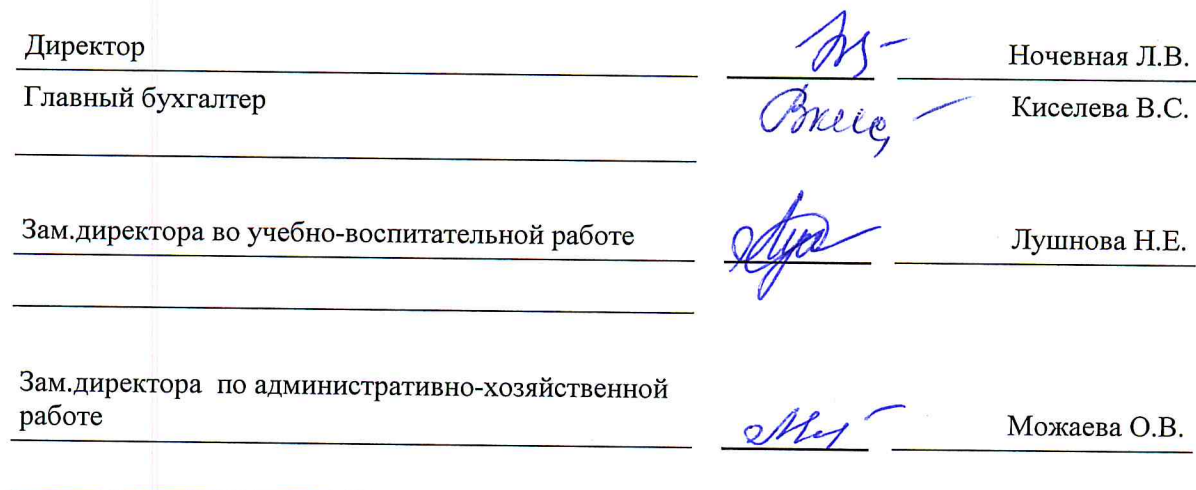 Директор Ночевная Л.В.
Главный бухгалтер Киселева В.С.
Зам.директора во учебно-воспитательной работе Лушнова Н.Е.
Зам.директора по административно-хозяйственной
работе Можаева О.В.